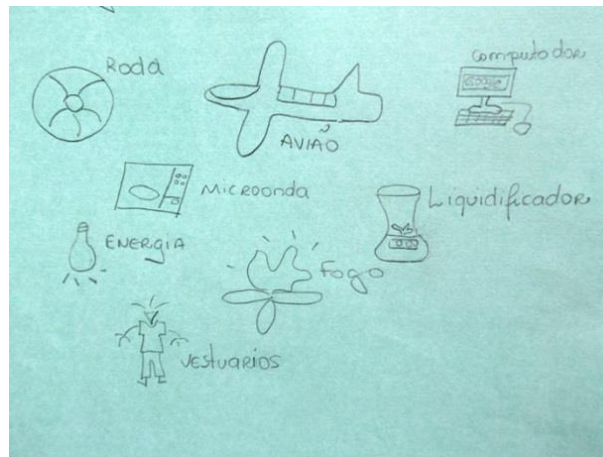 Roda
computador
AVIÃO
Microonda
Liquidificador
ENERGIA
Fogo
vestuarios